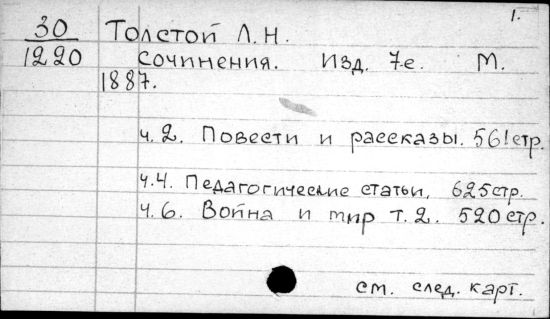 1.
30 Толстой Л.Н.
1220 Сочинения. Изд. 7-е. М.
1887.
ч.2. Повести и рассказы. 561стр.
ч.4. Педагогические статьи, 625стр.
ч.6. Война и мир т.2. 520стр.
см. след. карт.